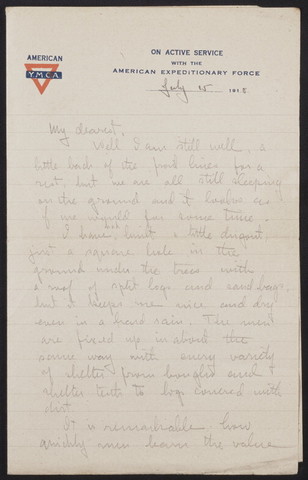 AMERICAN
YMCA
ON ACTIVE SERVICE
WITH THE
AMERICAN EXPEDITIONARY FORCE
July 15 1918
My dearest,
Well I am still well, a
little back of the front lines for a
rest, but we are all still sleeping
on the ground and it looks as
if we would for some time.
I have built a little dugout
just a square hole in the
ground under the trees with
a roof of split logs and sand bags,
but it keeps me nice and dry
even in a hard rain. The men
are fixed up in about the
same way with every variety
of shelter from boughs and
shelter tents to logs covered with
dirt.
It is remarkable how
quickly men learn the value